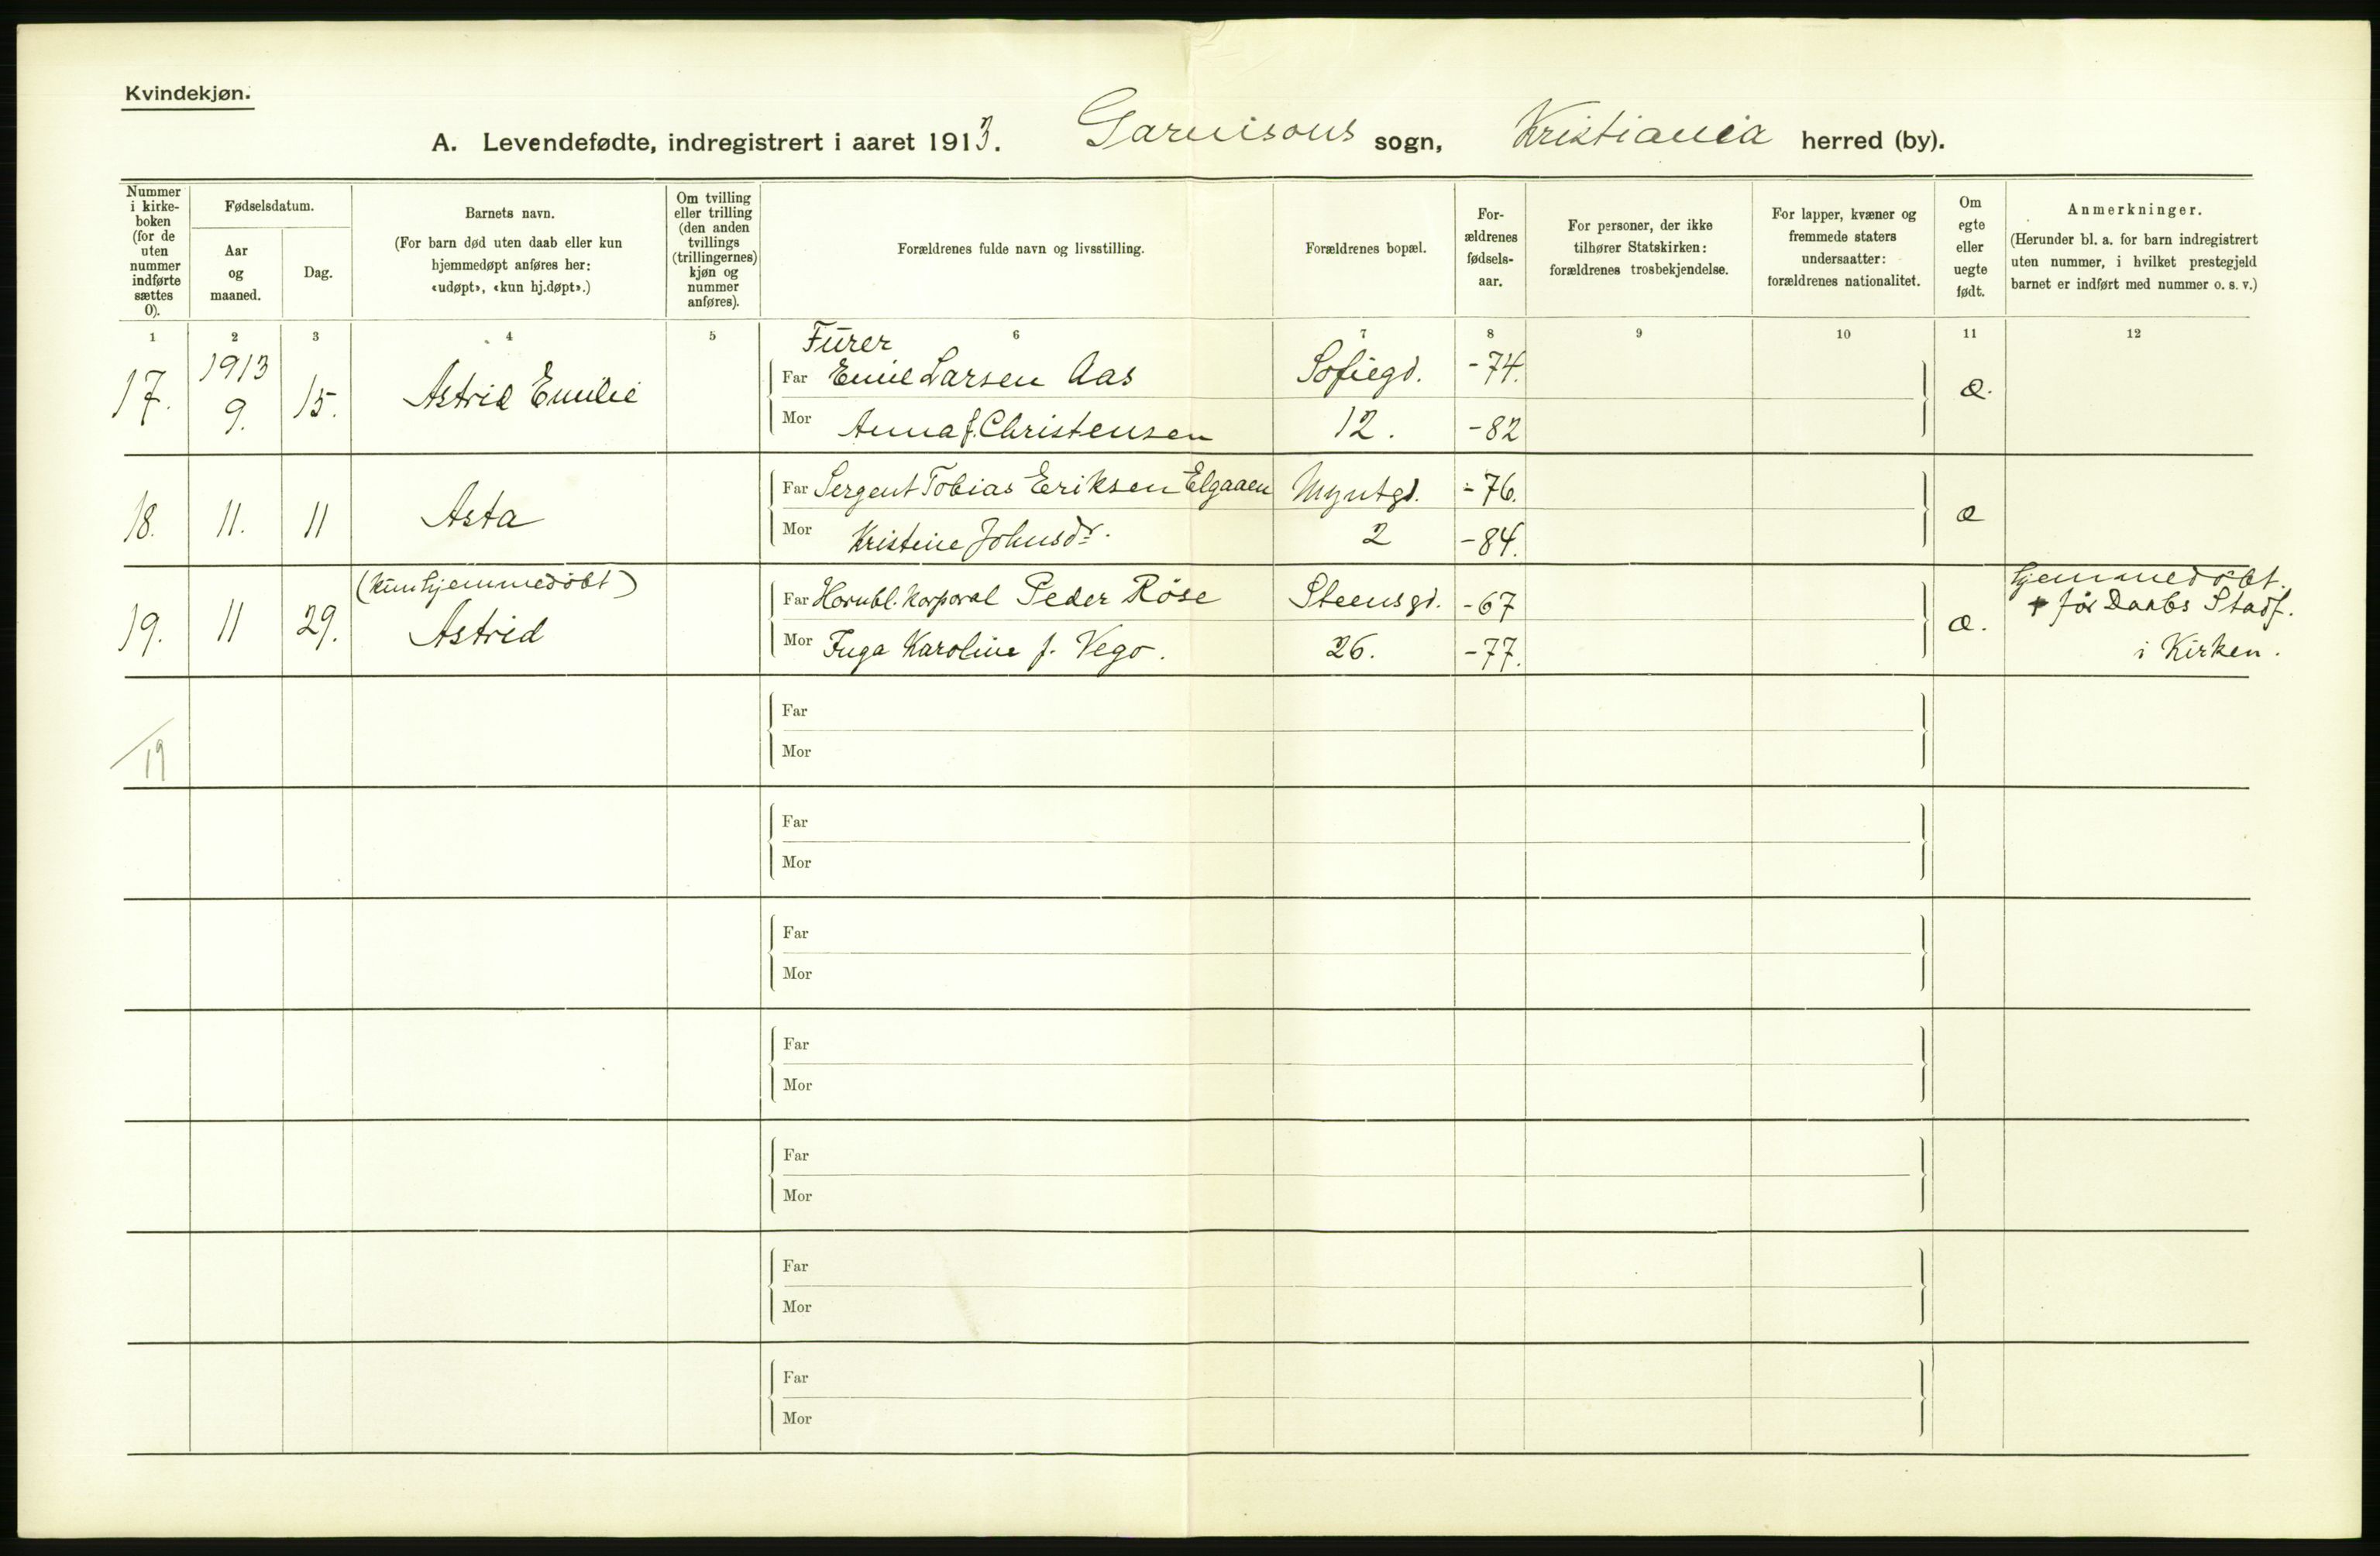 Kvindekjøn.
A. Levendefødte, indregistrert i aaret 1913. Garnisons sogn, Kristiania herred (by).
Nummer i kirke-boken (for de uten nummer indførte sættes 0).
Fødselsdatum.
Aar og maaned.
Dag.
Barnets navn.
(For barn død uten daab eller kun hjemmedøpt anføres her: «udøpt», «kun hj.døpt».)
Om tvilling eller trilling (den anden tvillings (trillingernes) kjøn og nummer anføres).
Forældrenes fulde navn og livsstilling.
Forældrenes bopæl.
For-ældrenes fødsels-aar.
For personer, der ikke tilhører Statskirken: forældrenes trosbekjendelse.
For lapper, kvæner og fremmede staters undersaatter: forældrenes nationalitet.
Om egte eller uegte født.
Anmerkninger.
(Herunder bl. a. for barn indregistrert uten nummer, i hvilket prestegjeld barnet er indført med nummer o. s. v.)
1 2 3 4 5 6 7 8 9 10 11 12
17. 1913 9. 15. Astrid Emilie
Furer
Far Emil Larsen Aas Sofiegd. -74. æ.
Mor Anna f. Christensen 12. -82
18. 11. 11 Asta
Far Sergent Tobias Eriksen Elgaaen Myntgd. -76. æ
Mor Kristine Johnsdr. 2 -84.
19. 11 29. (kun hjemmedöbt) Astrid
Far Hornbl. Korporal Peder Röse Steensgd. -67 æ.
Mor Inga Karoline f. Vego. 26. -77.
hjemmedöbt.
† för Daabs Stadf.
i Kirken.
19
Far
Mor
Far
Mor
Far
Mor
Far
Mor
Far
Mor
Far
Mor
Far
Mor